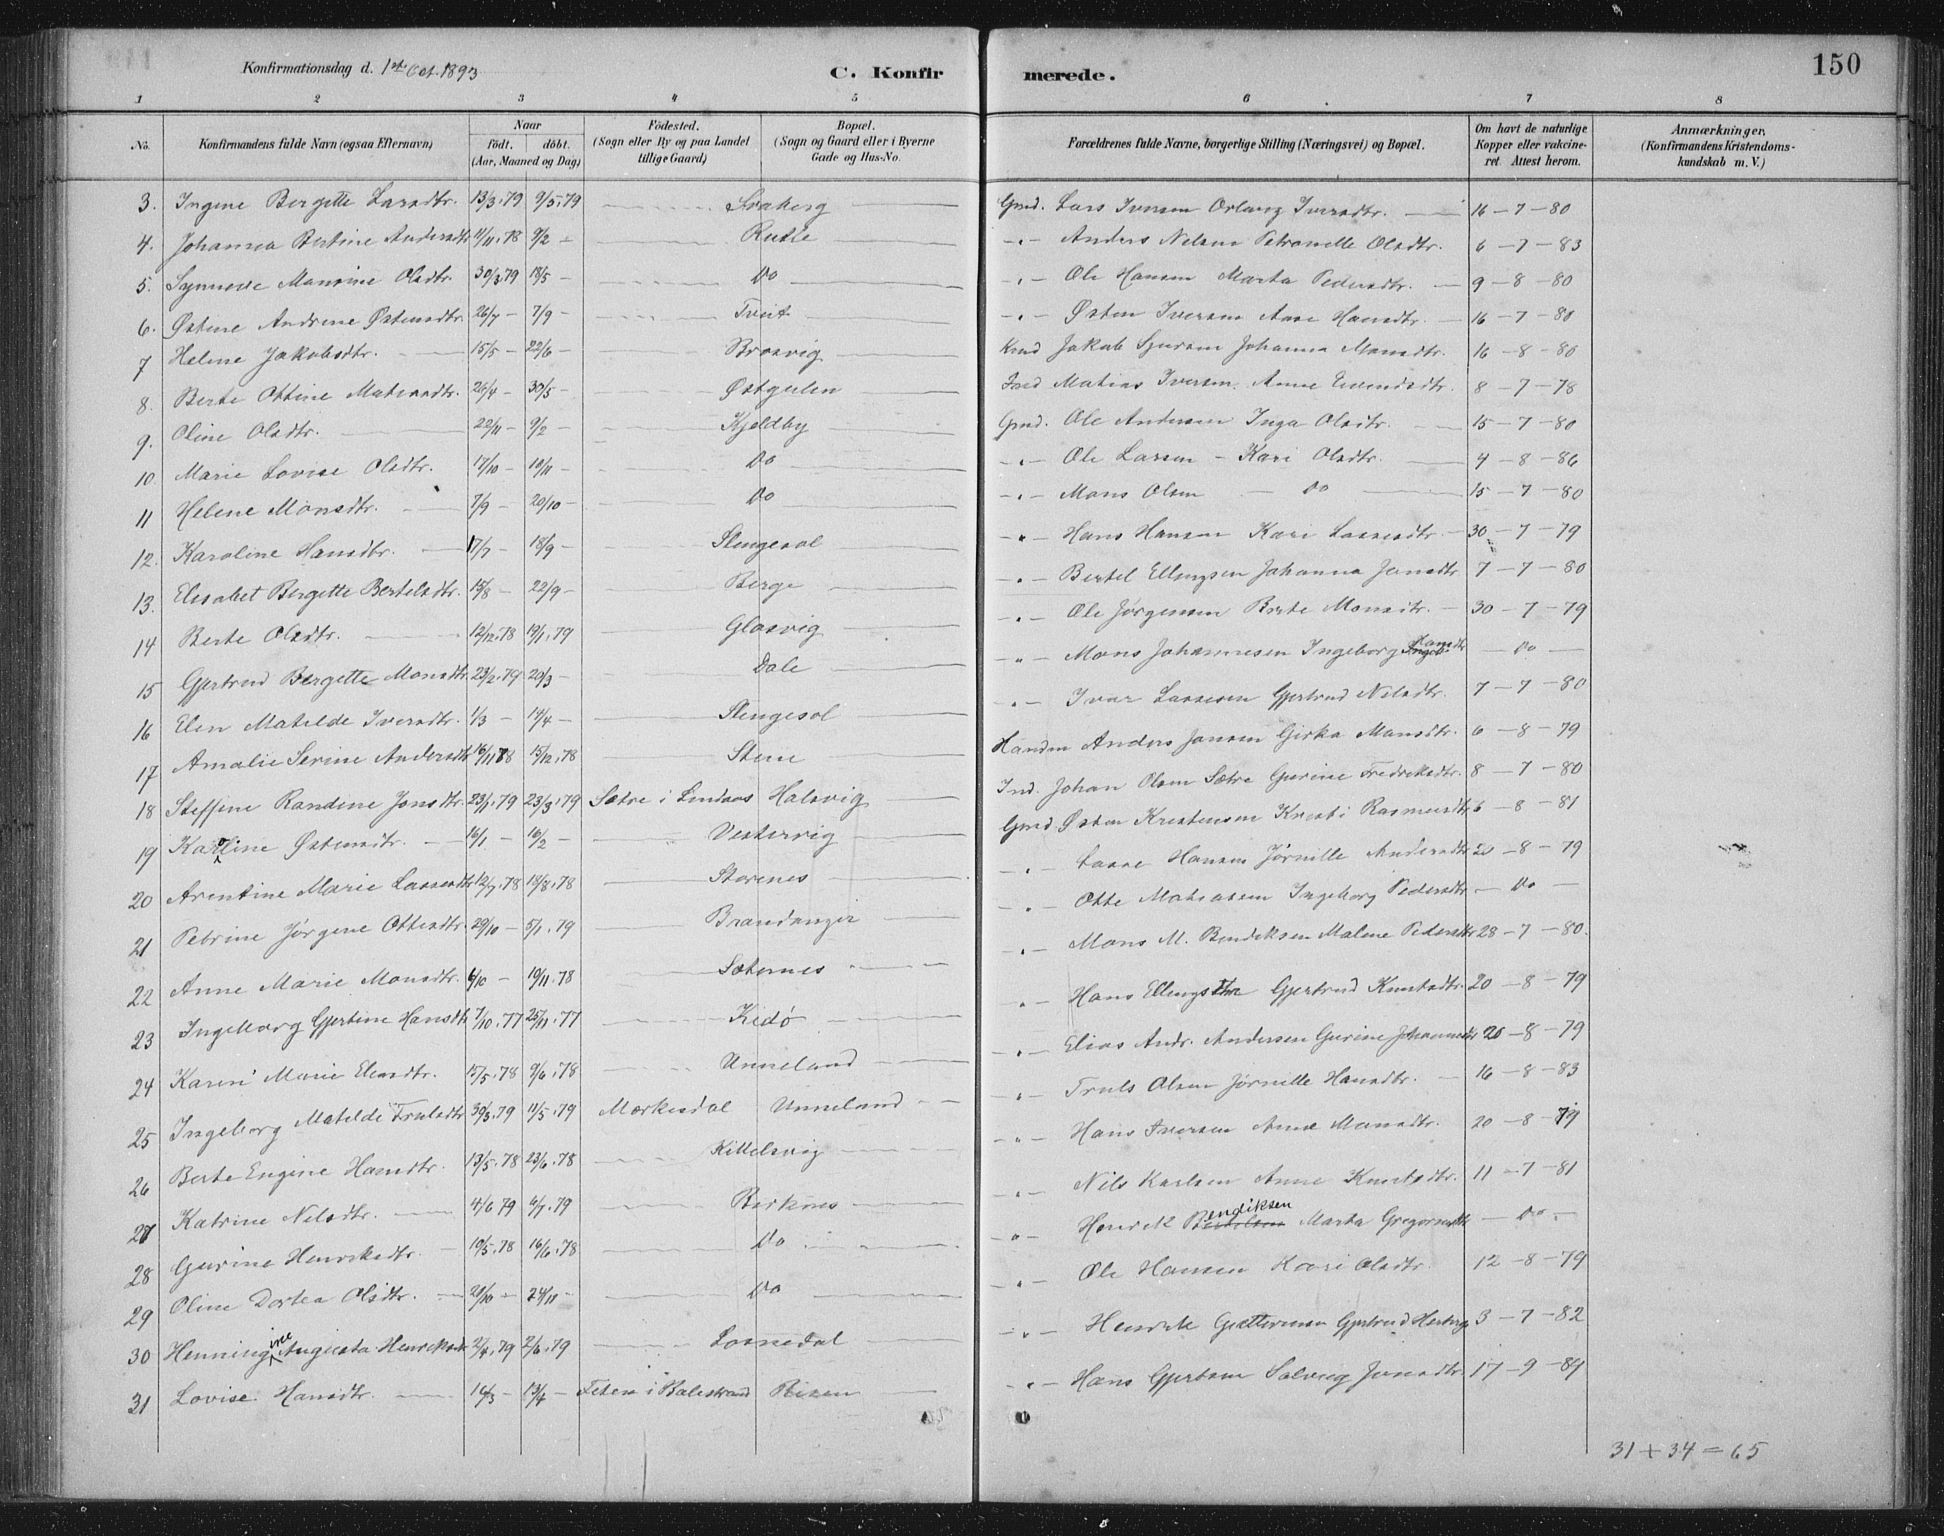 Konfirmationsdag d. 1ste Oct. 1893
C. Konfirmerede.
150
1 2 3 4 5 6 7 8
No.
Konfirmandens fulde Navn (ogsaa Efternavn)
Naar
födt. döbt.
(Aar, Maaned og Dag)
Födested.
(Sogn eller By og paa Landet
tillige Gaard)
Bopæl.
(Sogn og Gaard eller i Byerne
Gade og Hus-No.
Forældrenes fulde Navne, borgerlige Stilling (Næringsvei) og Bopæl.
Om havt de naturlige
Kopper eller vakcine-
ret. Attest herom.
Anmærkninger.
(Konfirmandens Kristendoms-
kundskab m. V.)
3. Ingine Bergitte Larsdtr. 13/3.79 9/5.79 Svaberg Grmd. Lars Iversen Iversdtr. 16-7-80
4. Johanna Bertine Andersdtr 11/11.78 9/2 - Rutle -"- Anders Nilsen Petronelle Olsdtr. 6-7-83
5. Synneve Monsine Olsdtr. 30/3.79 18/5 - Do -"- Ole Hansen Marta Pedersdtr. 9-8-80
6. Østine Andrine Østensdtr. 26/7 - 7/9 - Tveit -"- Østen Iversen Aase Hansdtr. 16-7-80
7 Helene Jakobsdtr. 15/5 - 22/6 - Brosvig Jakob Sjursen Johanna Monsdtr. 16-8-80
8. Berte Ottine Matiasdtr. 26/4 - 30/5 - Østgulen Matias Iversen. Anne Eivendsdtr. 8-7-78
9. Oline Olsdtr. 22/11 - 9/2 - Kjeldby Grmd. Ole Andersen Inga Olsdtr. 15-7-80
10 Marie Lovise Olsdtr. 17/10 - 10/11 - Do -"- Ole Larsen - Kari Olsdtr. 4-8-86
11 Helene Monsdtr. 7/9 - 20/10 - Do -"- Mons Olsen - Do 15-7-80
12. Karoline Hansdtr. 17/7 - 18/9 - Slengesol -"- Hans Hansen Kari Lassesdtr. 30-7-79
13. Elisabet Bergitte Bertelsdtr. 15/8 - 22/9 - Berge -"- Bertel Ellingsen Johanna Jonsdtr 7-7-80
14 Berte Olsdtr. 12/12.78 19/1.79 Glosvig -"- Ole Jørgensen Berte Monsdtr. 30-7-79
15 Gjertrud Bergitte Monsdtr. 23/2.79 20/3 - Dale -"- Mons Johannesen Ingeborg Hansdtr - Do -
16 Elen Matilde Iversdtr. 1/3 - 14/4 - Slengesol -"- Ivar Lassesen Gjertrud Nilsdtr. 7-7-80
17 Amalie Serine Andersdtr 16/11 78 15/12.78 Stene Anders Jonsen Girka Monsdtr. 6-8-79
18 Steffine Randine Jonsdtr. 23/1.79 23/3.79 Sætre i Lindaas Halsvig Ind. Johan Olsen Sætre Gurine Fredriksdtr. 8-7-80
19 Karoline Østensdtr. 16/1 - 16/2 - Vestervig Grmd. Østen Kristensen Kristi Rasmusdtr 6-8-81
20 Arentine Marie Lassesdtr 12/7.78 18/8.78 Storenes -"- Lasse Hansen Jørnille Andersdtr 20-8-79
21 Petrine Jørgine Ottesdtr. 29/10 - 5/1.79 Brandanger -"- Otte Matiasen Ingeborg Pedersdtr - Do -
22 Anne Marie Monsdtr. 6/10 - 10/11.78 Sæternes -"- Mons M. Bendiksen Malene Pedersdtr 28-7-80.
23 Ingeborg Gjertine Hansdtr 7/10.77 25/11.77 Kidø -"- Hans Gjertrud Knutsdtr. 20-8-79
24 Karen Marie Eliasdtr. 15/5.78 9/6.78 Unneland -"- Elias Andr. Andersen Gurine Johannesdtr 20-8-79
25 Ingeborg Matilde Trulsdtr 30/3.79 11/5.79 Mørkisdal Unneland -"- Truls Olsen Jørnille Hansdtr. 16-8-83
26 Berte Engine Hansdtr. 13/5.78 23/6.78 Kittelsvig -"- Hans Iversen Anne Monsdtr. 20-8-79
27 Katrine Nilsdtr. 4/6 79 6/7.79 Birknes -"- Nils Karlsen Anne Knutsdtr. 11-7-81
28 Gurine Henriksdtr. 19/5.78 16/6.78 Do -"- Henrik Bendiksen Marta Gregoriusdtr - Do -
29 Oline Dortea Olsdtr. 20/10 - 24/11 - Do -"- Ole Hansen Kari Olsdtr. 12-8-79
30 Henningine Augusta Henriksdtr 2/4.79 2/6.79 Losnedal -"- Henrik Guttormsen Gjertrud 3-7-82
31 Lovise Hansdtr. 16/3 - 13/4 - Feten i Balestrand Risen -"- Hans Gjertsen Solveig Jonsdtr. 17-9-89
31 + 34 = 65